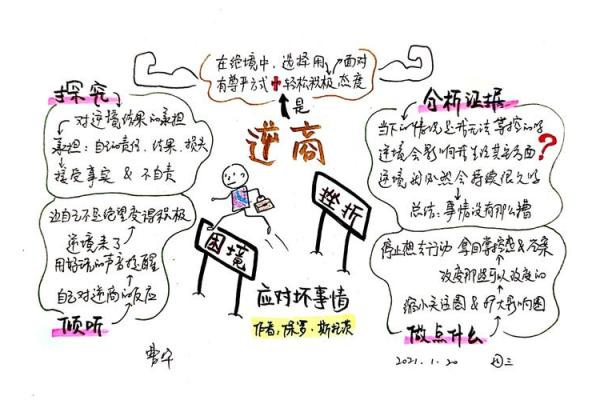 在绝境中，选择用 面对
有尊严方式+轻松积极 态度
是
逆商
探究
对逆境结果的承担
承担：自己的责任、结果、损失
接受事实 & 不自责
让自己不是绝望变得积极
逆境来了
用好听的声音提醒
自己对逆商的反应
倾听
困境
挫折
应对坏事情
作者：保罗·斯托茨
分析证据
当下的情况是我无法掌控的吗
逆境会影响我生活其它方面
逆境的必然会持续很久吗
?
总结：事情没有那么糟
停止想去行动 拿回掌控感&
改变那些可以改变的
缩小关注圈&扩大影响圈
做点什么
2021.1.20 周三